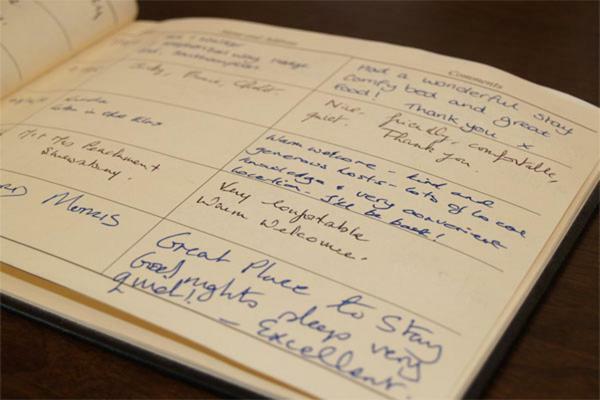 Name and Address
Comments
Southampton
Had a wonderful stay
Comfy bed and great
food! Thank you x
Judy,
Nice, friendly, comfortable,
quiet. Thank you.
in the
Warm welcome - kind and
generous hosts - lots of local
knowledge & very convenient
location. I'll be back!
Mr + Mrs Parchment
Shrewsbury.
Very comfortable
Warm Welcome.
Morris
Great Place to Stay
Good nights sleep very
quiet! - Excellent.